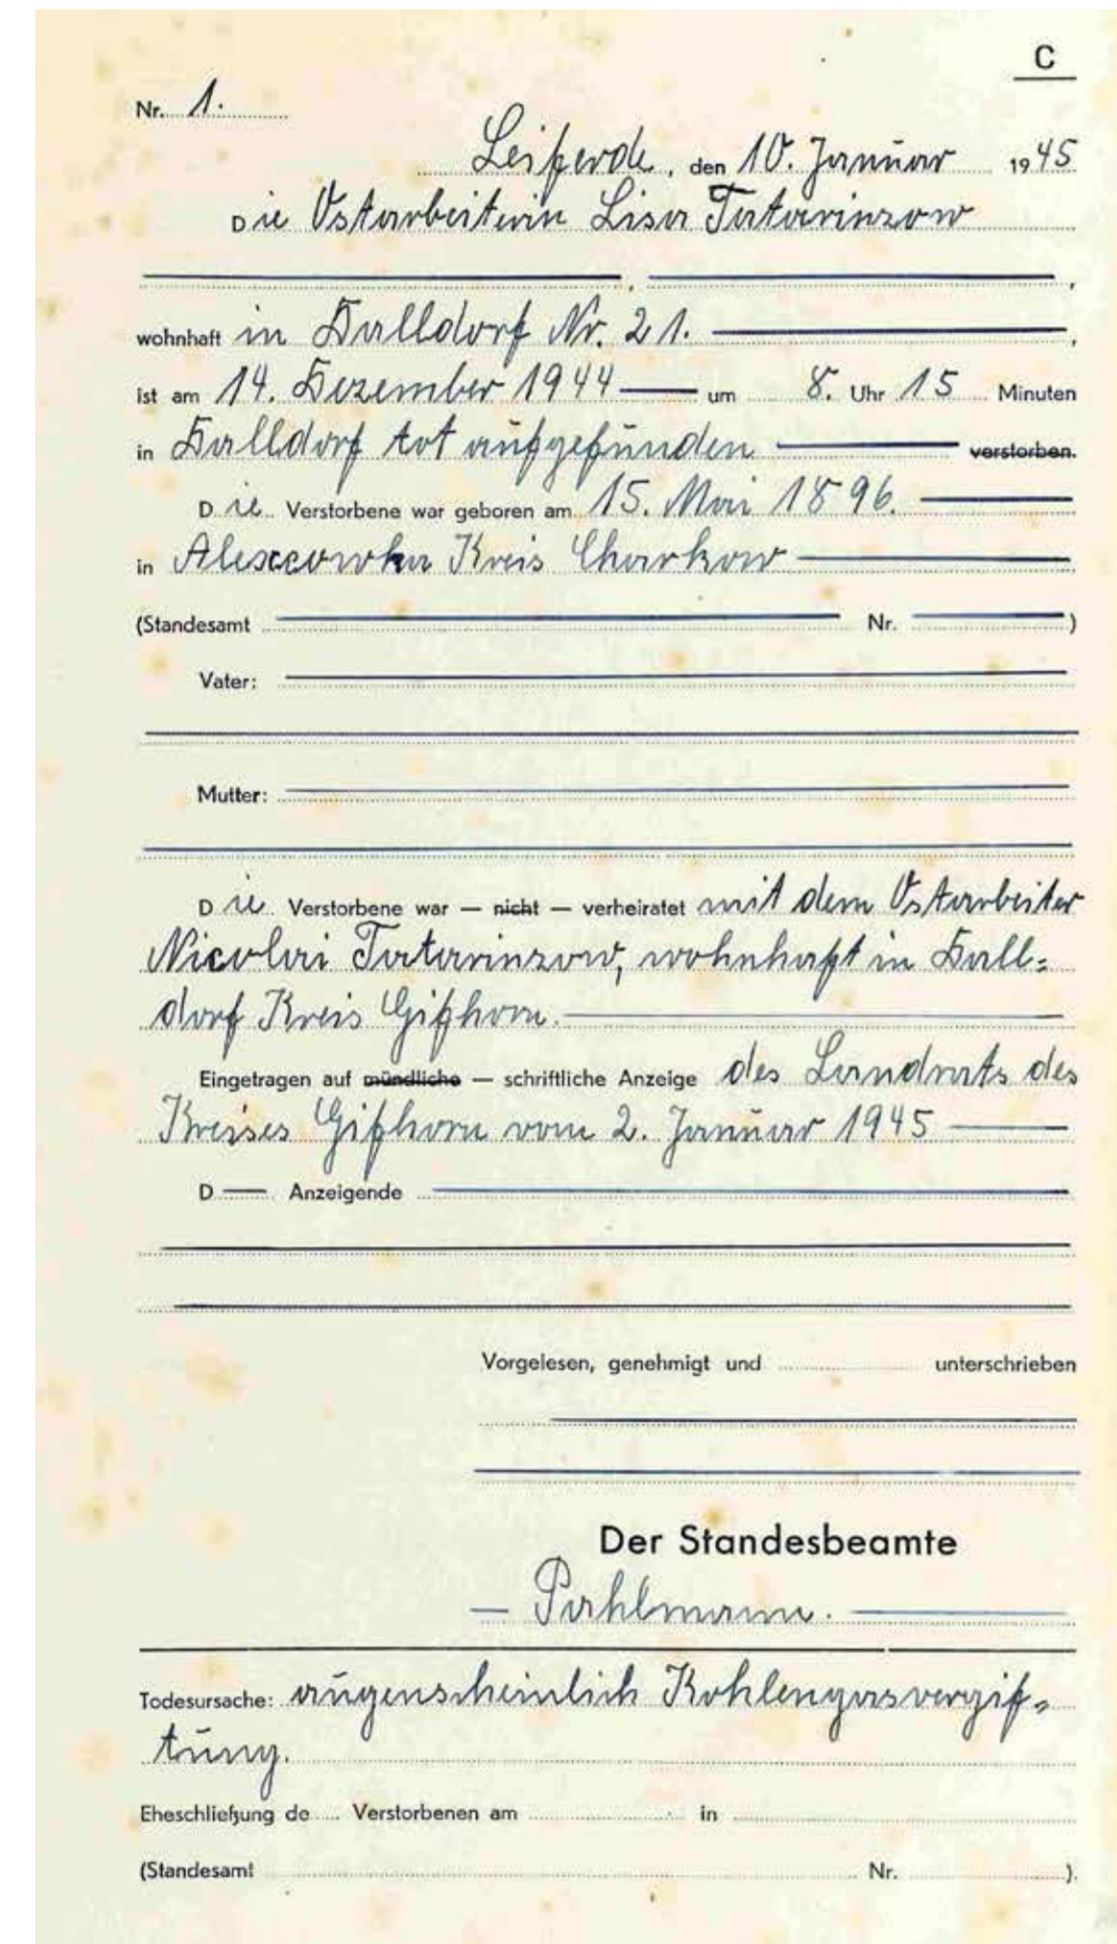 C
Nr. 1.
Leiferde, den 10. Januar 1945
Die Ostarbeiterin Lisa Tatarinzow
wohnhaft in Dalldorf Nr. 21.
ist am 14. Dezember 1944 um 8. Uhr 15 Minuten
in Dalldorf tot aufgefunden verstorben.
Die Verstorbene war geboren am 15. Mai 1896.
in Kreis Charkow
(Standesamt Nr. )
Vater:
Mutter:
Die Verstorbene war — nicht — verheiratet mit dem Ostarbeiter
Nicolai Tatarinzow, wohnhaft in Dall=
dorf Kreis Gifhorn.
Eingetragen auf mündliche — schriftliche Anzeige des Landrats des
Kreises Gifhorn vom 2. Januar 1945
D Anzeigende
Vorgelesen, genehmigt und unterschrieben
Der Standesbeamte
Pahlmann.
Todesursache: augenscheinlich Kohlengasvergif=
tung.
Eheschließung de Verstorbenen am in
(Standesamt Nr. ).